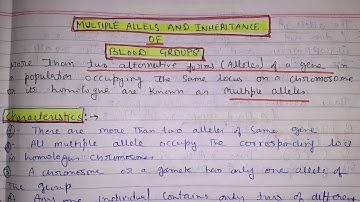 MULTIPLE ALLELS AND INHERITANCE
OF
BLOOD GROUPS
More Than two alternative forms (Alleles) of a gene in
a population occupying the same locus on a chromosome
or its homologue are known as Multiple alleles.
Characteristics:→
① There are more than two alleles of same gene
② All multiple allele occupy the corresponding loci
in homologus chromosomes
③ A chromosome or a gamete has only one allele of
The group
Any one individual contains only two of different